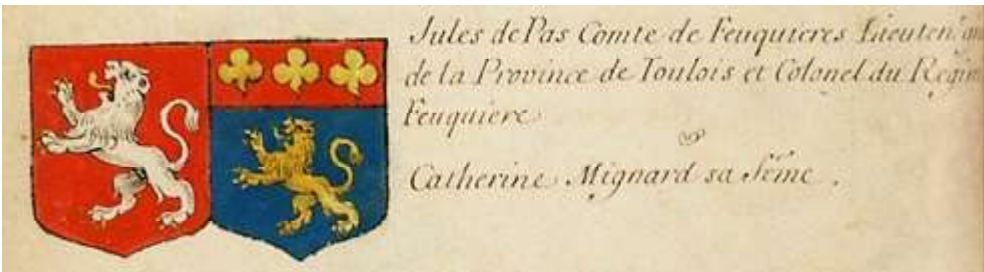 Jules de Pas Comte de Feuquieres Lieuten.
de la Province de Toulois et Colonel du Regim
Feuquiere
&
Catherine Mignard sa féme.